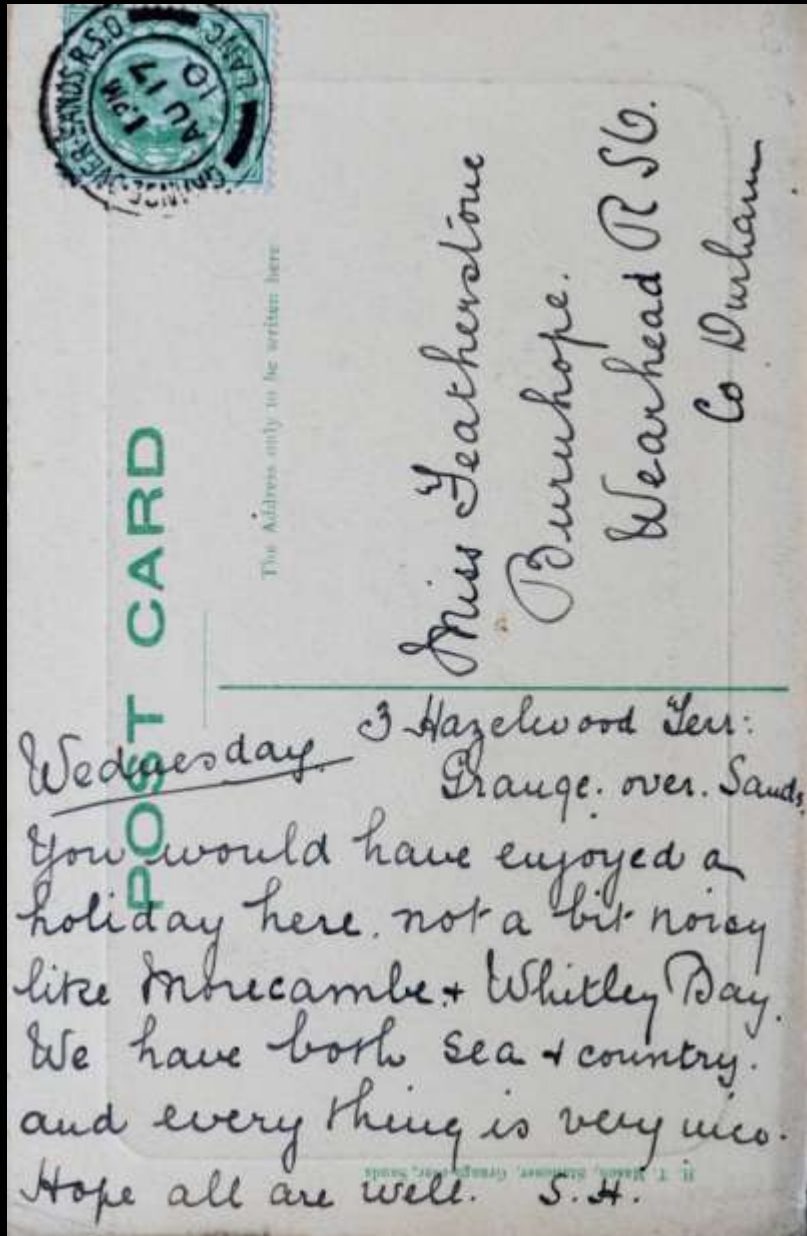 GRANGE-OVER-SANDS.R.S.O
LANC
1 PM
AU 17
10
POST CARD
The Address only to be written here
Miss Featherstone
Burnhope.
Wearhead R SO.
Co Durham
Wednesday.
3 Hazelwood Terr:
Grange. over. Sands,
You would have enjoyed a
holiday here. not a bit noisy
like Morecambe + Whitley Bay.
We have both sea + country.
and every thing is very nice.
Hope all are well. S.H.
H. T. Mason, Stationer, Grange-over-Sands